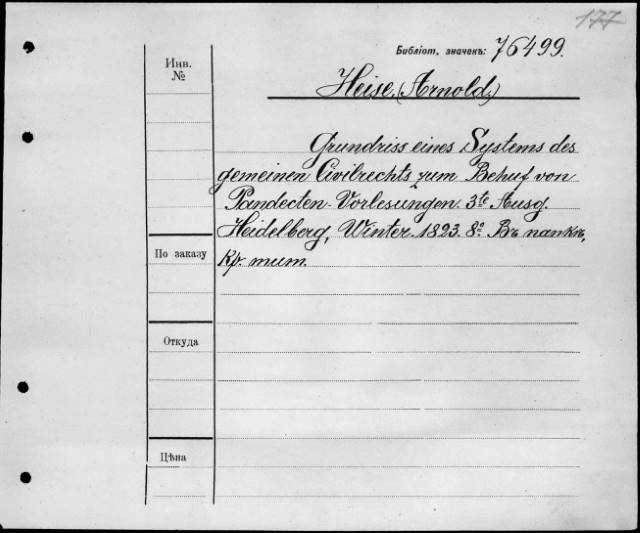 177
Библіот. значекъ: 76499.
Инв.
№
Heise, (Arnold,)
Grundriss eines Systems des
gemeinen Civilrechts zum Behuf von
Pandecten-Vorlesungen. 3te Ausg.
Heidelberg, Winter. 1823. 8º. Въ папкѣ,
По заказу
Кр. тит.
Откуда
Цѣна